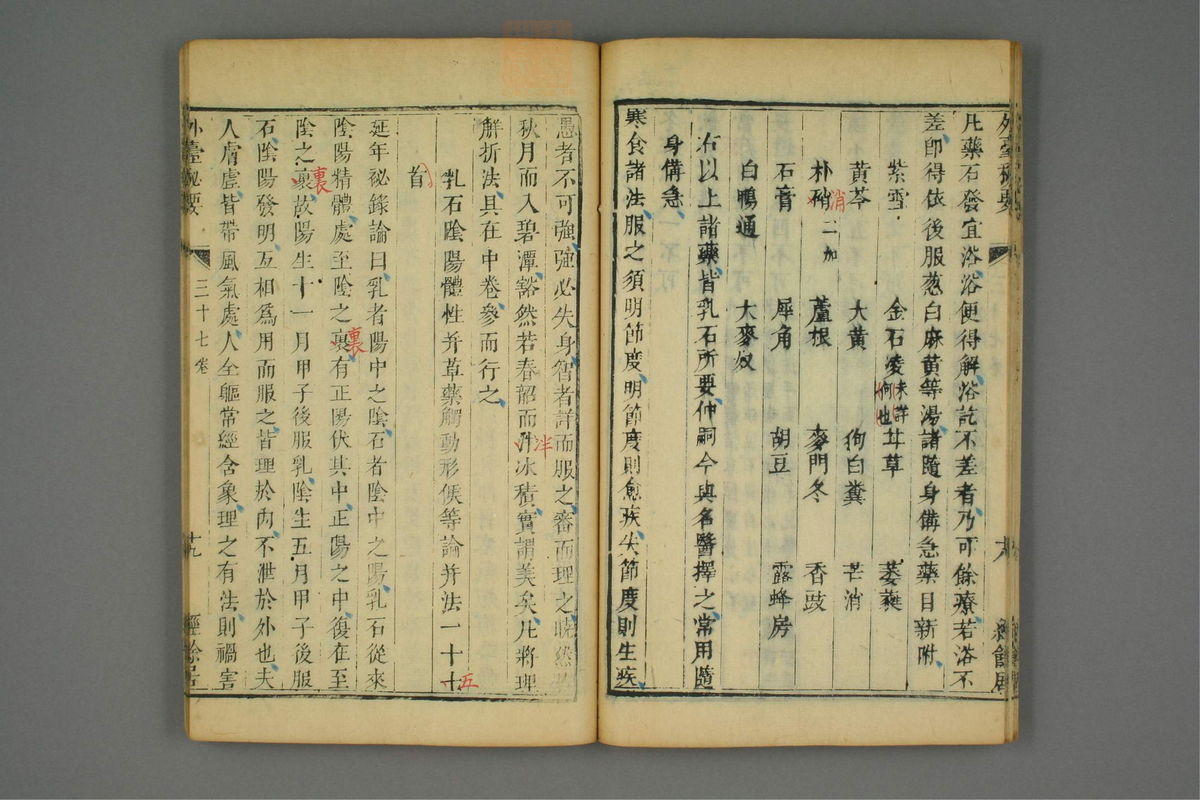 凡藥石發宜浴浴便得解浴訖不差者乃可餘療若浴不
差即得依後服葱白麻黄等湯諸隨身備急藥目新附
紫雪 金石凌未詳何也 甘草 萎蕤
黄芩 大黄 狗白糞 芒消
朴硝消二加 蘆根 麥門冬 香豉
石膏 犀角 胡豆 露蜂房
白鴨通 大麥奴
右以上諸藥皆乳石所要仲嗣今與名醫擇之常用隨
身備急
寒食諸法服之須明節度明節度則愈疾失節度則生疾
愚者不可強強必失身智者詳而服之審而理之曉然若
秋月而入碧潭豁然若春韶而泮冰積實謂美矣凡將理
解折法具在中卷參而行之
乳石陰陽體性并草藥觸動形候等論并法一十七五
首
延年祕錄論曰乳者陽中之陰石者陰中之陽乳石從來
陰陽精體處至陰之裏裏有正陽伏其中正陽之中復在至
陰之裏裏故陽生十一月甲子後服乳陰生五月甲子後服
石陰陽發明互相爲用而服之皆理於內不泄於外也夫
人膚虚皆帶風氣處人全軀常經含象理之有法則禍害
外臺秘要
三十七卷
十九
經餘居